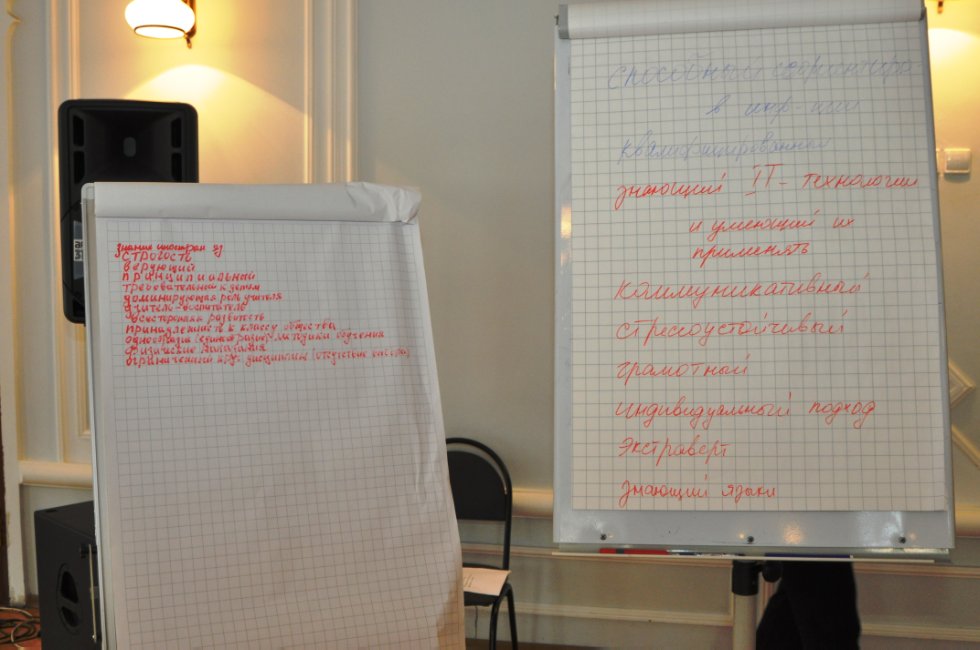 знания иностран яз
строгость
верующий
принципиальный
требовательный к детям
доминирующая роль учителя
учитель-воспитатель
всесторонняя развитость
принадлежность к классу общества
однообразие (единообразие) методики обучения
физические наказания
ограниченный круг дисциплин (отсутствие выбора)
способный сориентиро
в инф-ции
квалифицированный
знающий IT-технологии
и умеющий их
применять
коммуникативный
стрессоустойчивый
грамотный
индивидуальный подход
экстраверт
знающий языки